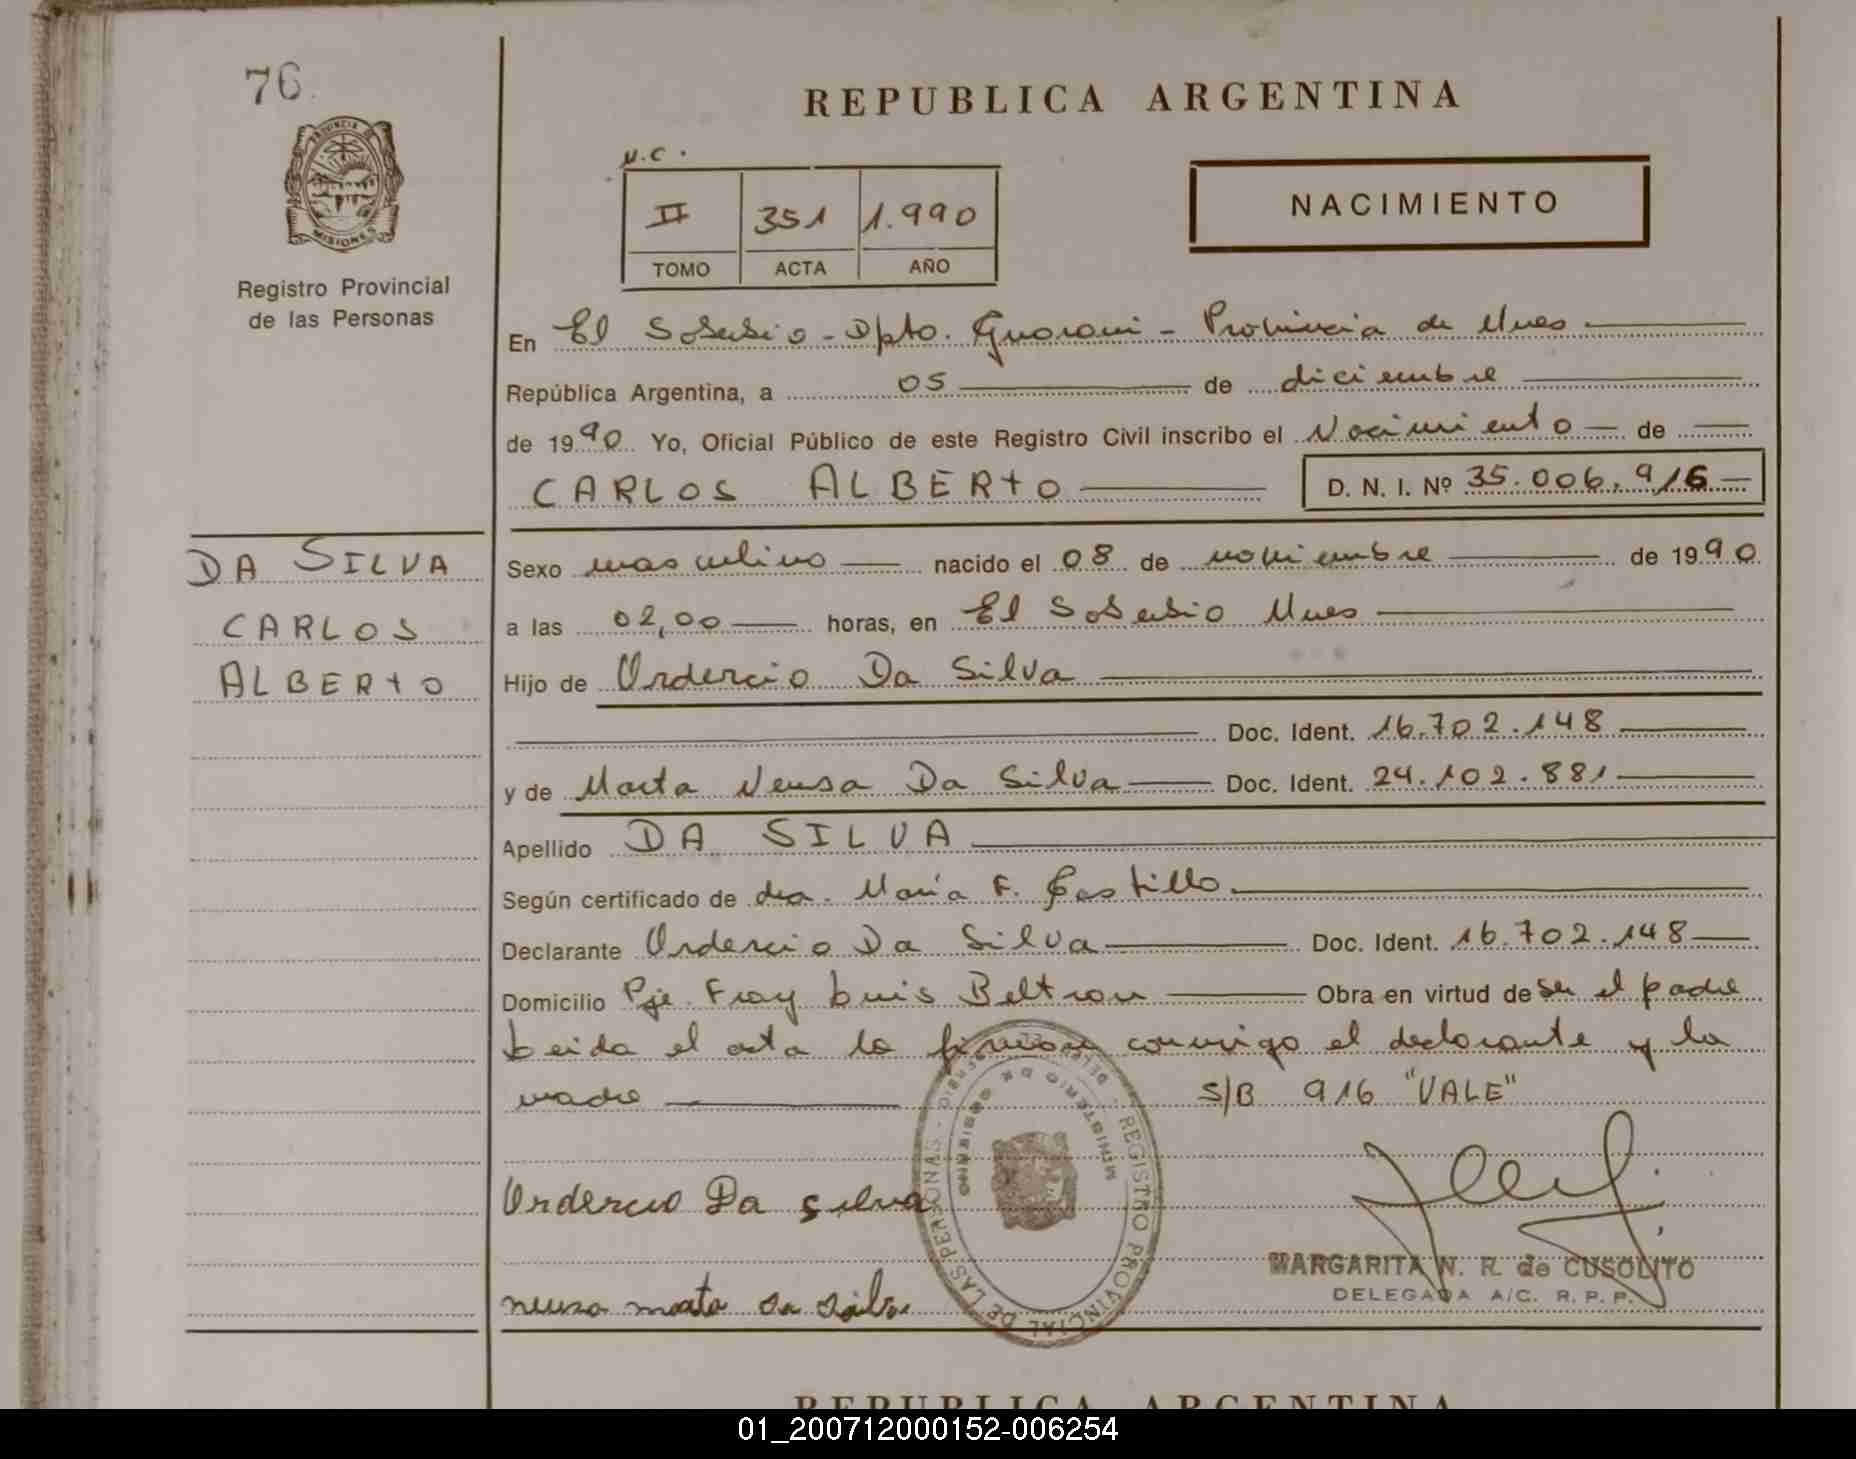 76
PROVINCIA DE
MISIONES
Registro Provincial
de las Personas
REPUBLICA ARGENTINA
N.C.
II 351 1.990
TOMO ACTA AÑO
NACIMIENTO
En El Soberbio - Dpto. Guarani - Provincia de Mnes
República Argentina, a 05 de diciembre
de 1990 Yo, Oficial Público de este Registro Civil inscribo el Nacimiento de
CARLOS ALBERTO D. N. I. Nº 35.006.916
DA SILVA
CARLOS
ALBERTO
Sexo masculino nacido el 08 de noviembre de 1990
a las 02,00 horas, en El Soberbio Mnes
Hijo de Urdercio Da Silva
Doc. Ident. 16.702.148
y de Marta Neusa Da Silva Doc. Ident. 24.102.881
Apellido DA SILVA
Según certificado de dra. María F. Castillo
Declarante Urdercio Da Silva Doc. Ident. 16.702.148
Domicilio Pje. Fray Luis Beltran Obra en virtud de ser el padre
Leida el acta la firman conmigo el declarante y la
madre S/B 916 "VALE"
REGISTRO PROVINCIAL DE LAS PERSONAS
MINISTERIO DE GOBIERNO
Urdercio Da Silva
neusa marta da silva
MARGARITA N. R. de CUSOLITO
DELEGADA A/C. R. P. P.
REPUBLICA ARGENTINA
01_200712000152-006254